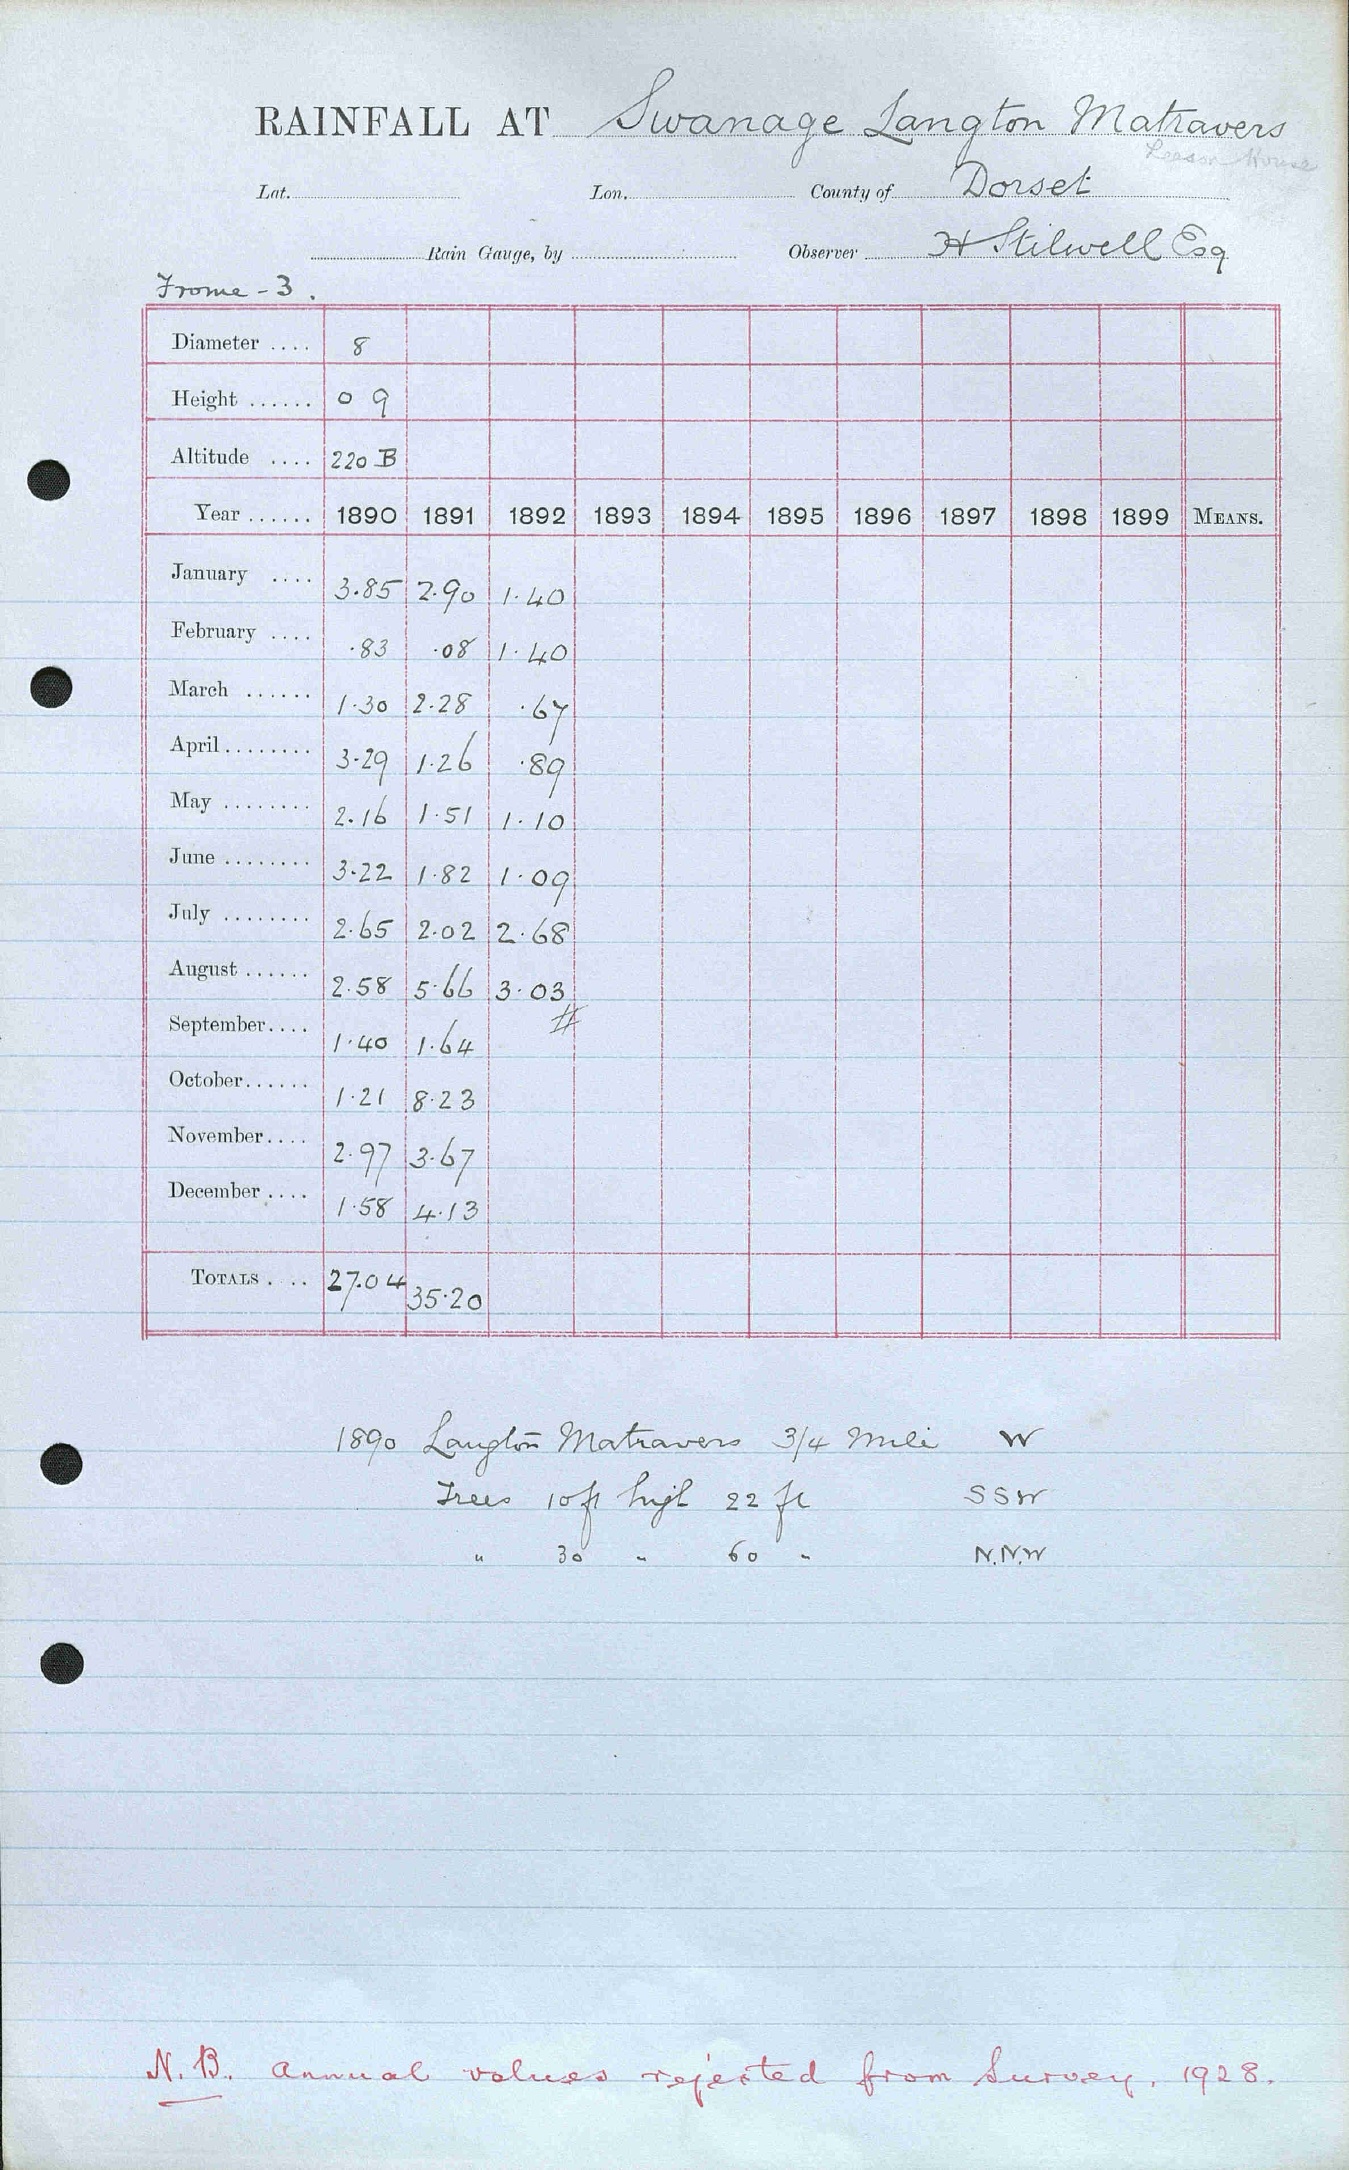 RAINFALL AT Swanage Langton Matravers
Leeson House
Lat. Lon. County of Dorset
Rain Gauge, by Observer H Stilwell Esq
Frome - 3.
Diameter .... 8
Height ...... 0 9
Altitude .... 220 B
Year ...... 1890 1891 1892 1893 1894 1895 1896 1897 1898 1899 MEANS.
January .... 3.85 2.90 1.40
February .... .83 .08 1.40
March ...... 1.30 2.28 .67
April........ 3.29 1.26 .89
May ........ 2.16 1.51 1.10
June ........ 3.22 1.82 1.09
July ........ 2.65 2.02 2.68
August ...... 2.58 5.66 3.03
September.... 1.40 1.64 #
October...... 1.21 8.23
November.... 2.97 3.67
December .... 1.58 4.13
TOTALS . .. 27.04 35.20
1890 Langton Matravers 3/4 Mile W
Trees 10 ft high 22 ft SSW
" 30 " 60 " N.N.W
N.B. Annual values rejected from Survey. 1928.